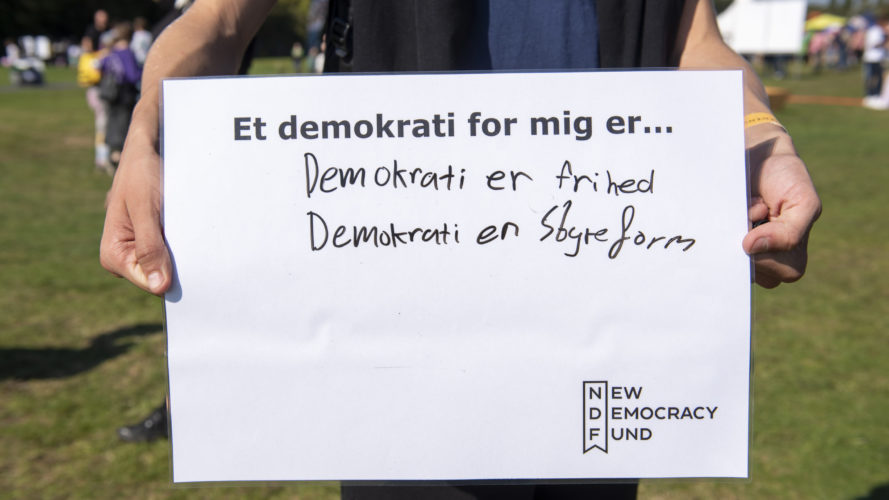 Et demokrati for mig er...
Demokrati er frihed
Demokrati er Sbyreform
NEW
DEMOCRACY
FUND